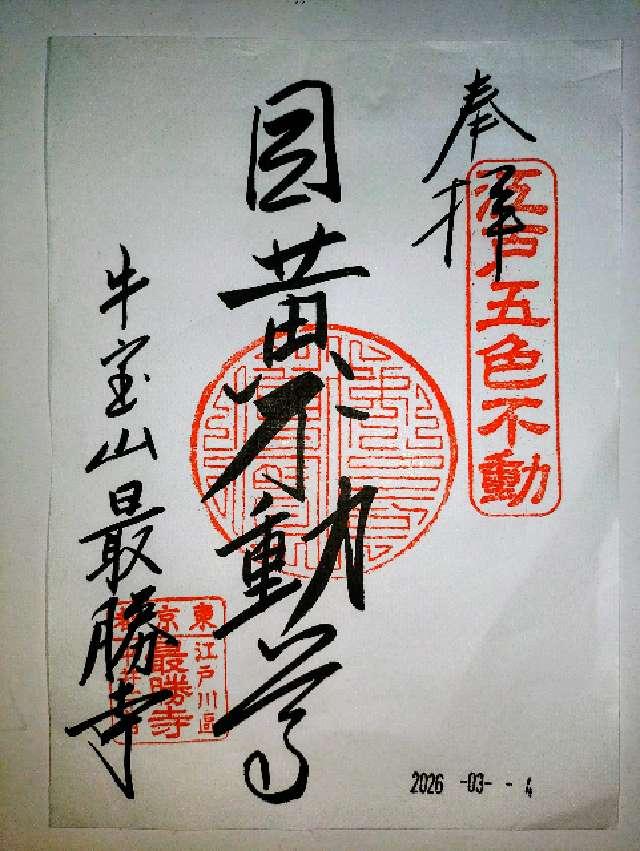 奉拝
江戸五色不動
目黄不動尊
牛宝山最勝寺
東京
江戸川區
最勝寺
2026 -03- - 4